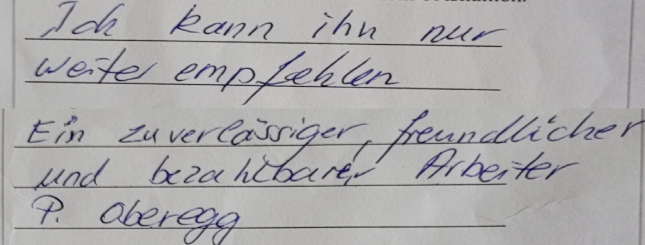 Ich kann ihn nur
weiter empfehlen
Ein zuverlässiger, freundlicher
und bezahlbarer Arbeiter
P. Oberegg